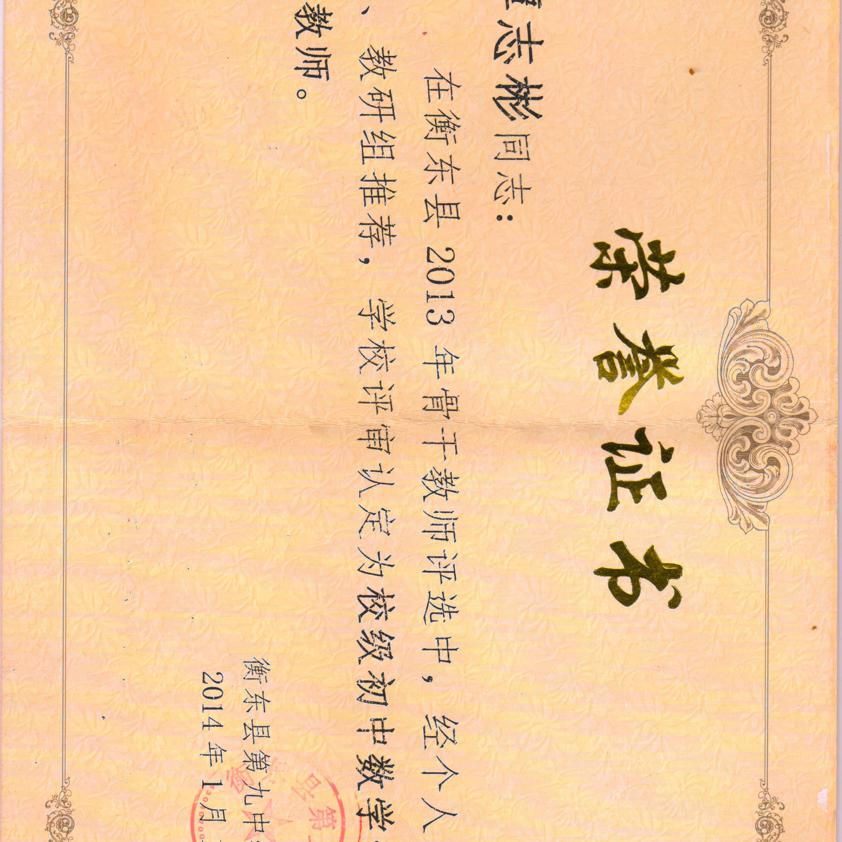 荣誉证书
志彬同志：
在衡东县 2013 年骨干教师评选中，经个人
、教研组推荐，学校评审认定为校级初中数学
教师。
衡东县第九中
2014 年 1 月
县第